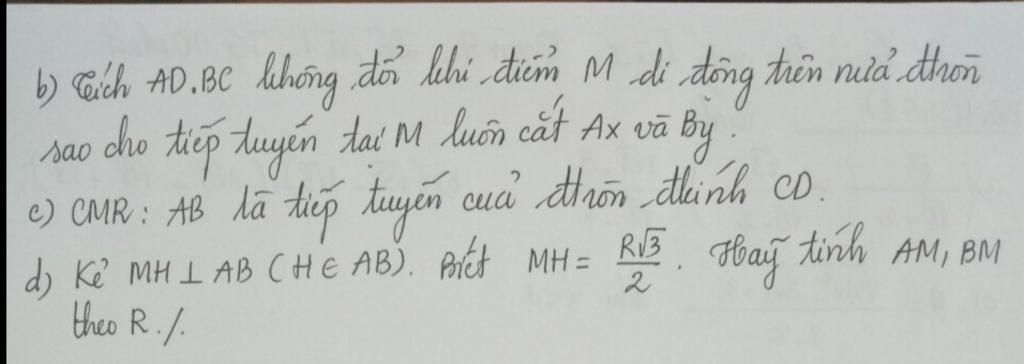 b) Tích AD.BC không đổi khi điểm M di động trên nửa đtròn
sao cho tiếp tuyến tại M luôn cắt Ax và By.
c) CMR: AB là tiếp tuyến của đtròn đkính CD.
d) Kẻ MH ⊥ AB (H ∈ AB). Biết MH = R√3/2. Hãy tính AM, BM
theo R./.